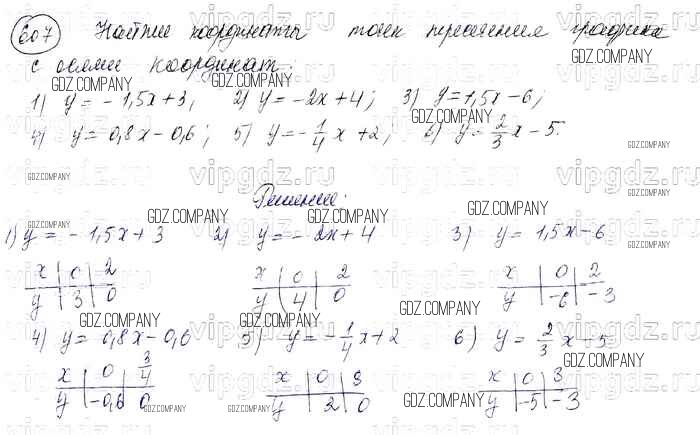 607 Найти координаты точек пересечения графика
с осями координат:
1) y = -1,5x+3, 2) y = -2x+4; 3) y=1,5x-6;
4) y = 0,8x-0,6; 5) y = -1/4 x+2, 6) y = 2/3 x-5.
Решение:
1) y = -1,5x+3 2) y = -2x+4 3) y = 1,5x-6
x | 0 | 2 x | 0 | 2 x | 0 | 2
y | 3 | 0 y | 4 | 0 y | -6 | -3
4) y = 0,8x-0,6 5) y = -1/4 x+2 6) y = 2/3 x-5
x | 0 | 3/4 x | 0 | 8 x | 0 | 3
y | -0,6 | 0 y | 2 | 0 y | -5 | -3
GDZ.COMPANY
vipgdz.ru